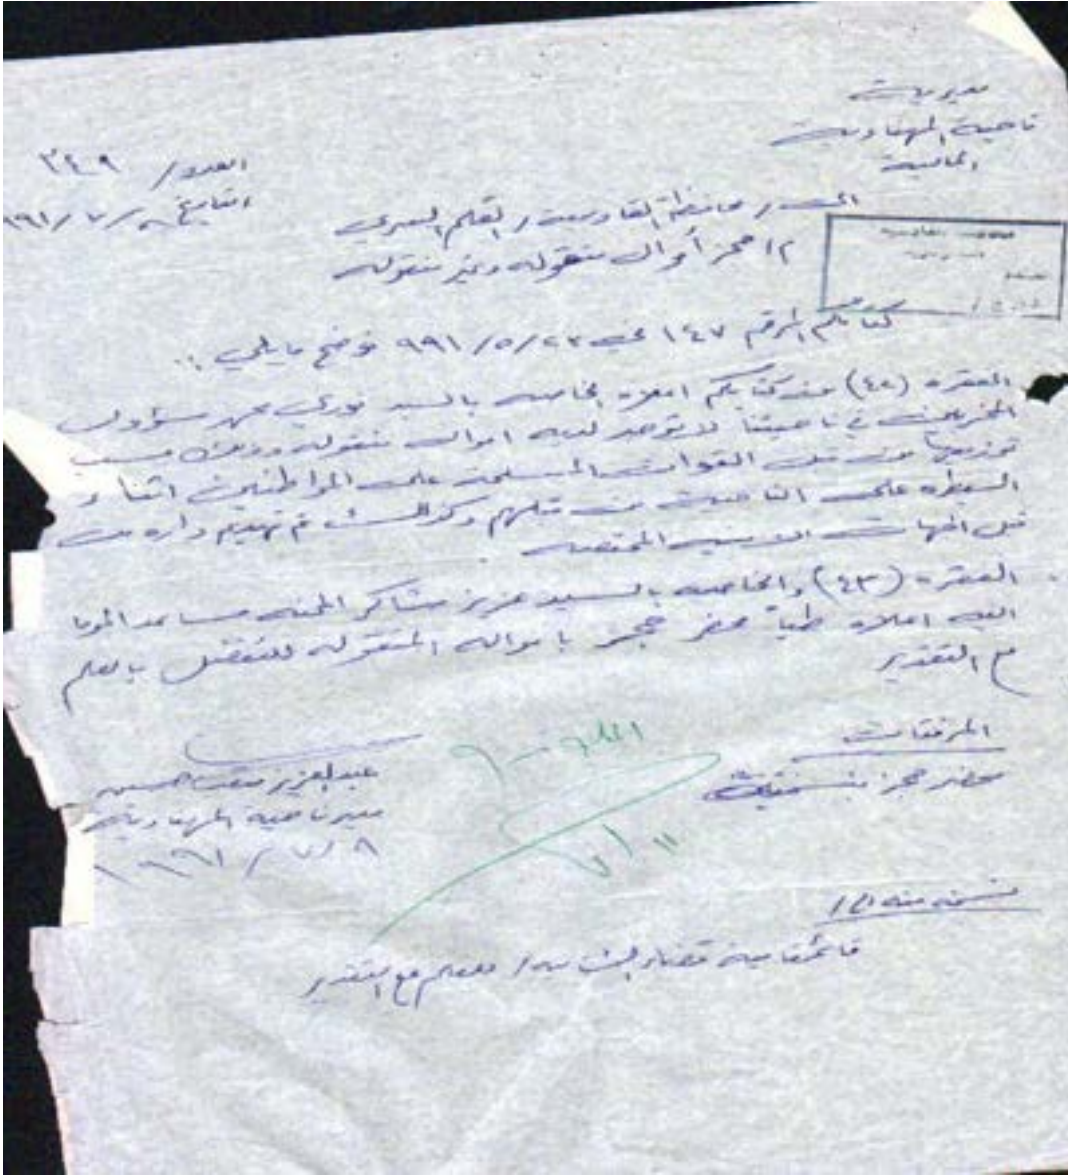 مديرية
ناحية المهناوية
المالية
العدد / ٣٤٩
التاريخ ٨ / ٧ / ٩٩١
الى / محافظة القادسية / القلم السري
م / حجز أموال منقوله وغير منقوله
كتابكم المرقم ١٤٧ في ٢٣ / ٥ / ٩٩١ نوضح مايلي :
الفقره (٤٢) من كتابكم اعلاه الخاصه بالسيد نوري
المخربين في ناحيتنا لا توجد لديه اموال منقوله وذلك بسبب
توزيعها من قبل القوات المسلحة على المواطنين اثناء
السيطره على الناحية من قبلهم وكذالك تم تهديم داره من
قبل الجهات الامنيه المختصه
الفقره (٤٣) والخاصه بالسيد عزيز شاكر مساعد الموما
اليه اعلاه طياً محضر حجز باموالة المنقوله للتفضل بالعلم
مع التقدير
المرفقات
محضر حجز بنسختين
عبدالعزيز حسين
مدير ناحية المهناوية
٨ / ٧ / ١٩٩١
١١ / ٧
نسخه منه الى /
قائمقامية قضاء الشاميه / للعلم مع التقدير